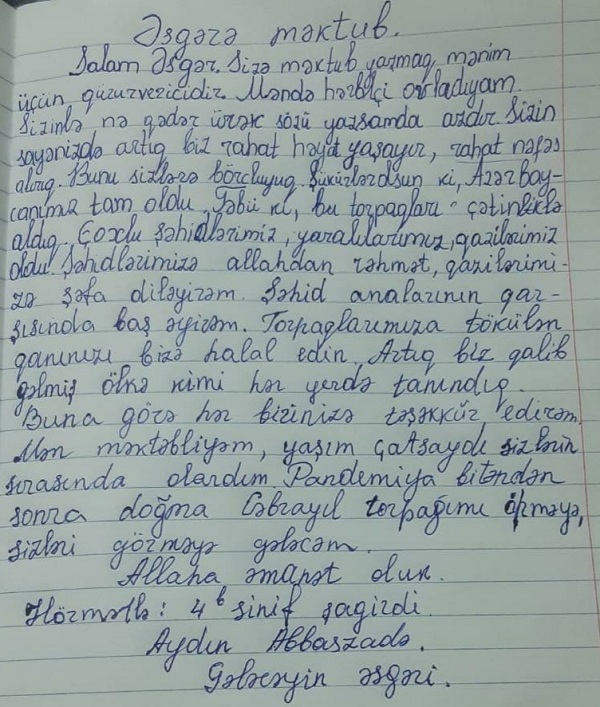 Əsgərə məktub.
Salam Əsgər. Sizə məktub yazmag mənim
üçün qüzurvericidir. Məndə hərbiçi övladıyam.
Sizinlə nə qədər ürək sözü yazsamda azdır. Sizin
sayənizdə artıg biz rahat həyat yaşayır, rahat nəfəs
alırıg. Bunu sizlərə borcluyug. Şükürlərolsun ki, Azərbay-
canımız tam oldu. Təbii ki, bu torpagları çətinliklə
aldıg. Çoxlu şəhidlərimiz, yaralılarımız, qazilərimiz
oldu. Şəhidlərimizə allahdan rəhmət, qazilərimi-
zə şəfa diləyirəm. Şəhid analarının qar-
şısında baş əyirəm. Torpaglarımıza tökülən
qanınızı bizə halal edin. Artıq biz qalib
gəlmiş ölkə kimi hər yerdə tanındıg.
Buna görə hər birinizə təşəkkür edirəm.
Mən məktəbliyəm, yaşım çatsaydı sizlərin
sırasında olardım. Pandemiya bitəndən
sonra doğma Cəbrayıl torpağını öpməyə,
sizləri görməyə gələcəm.
Allaha əmanət olun.
Hörmətlə: 4ᵇ sinif şagirdi
Aydın Abbaszadə.
Gələcəyin əsgəri.